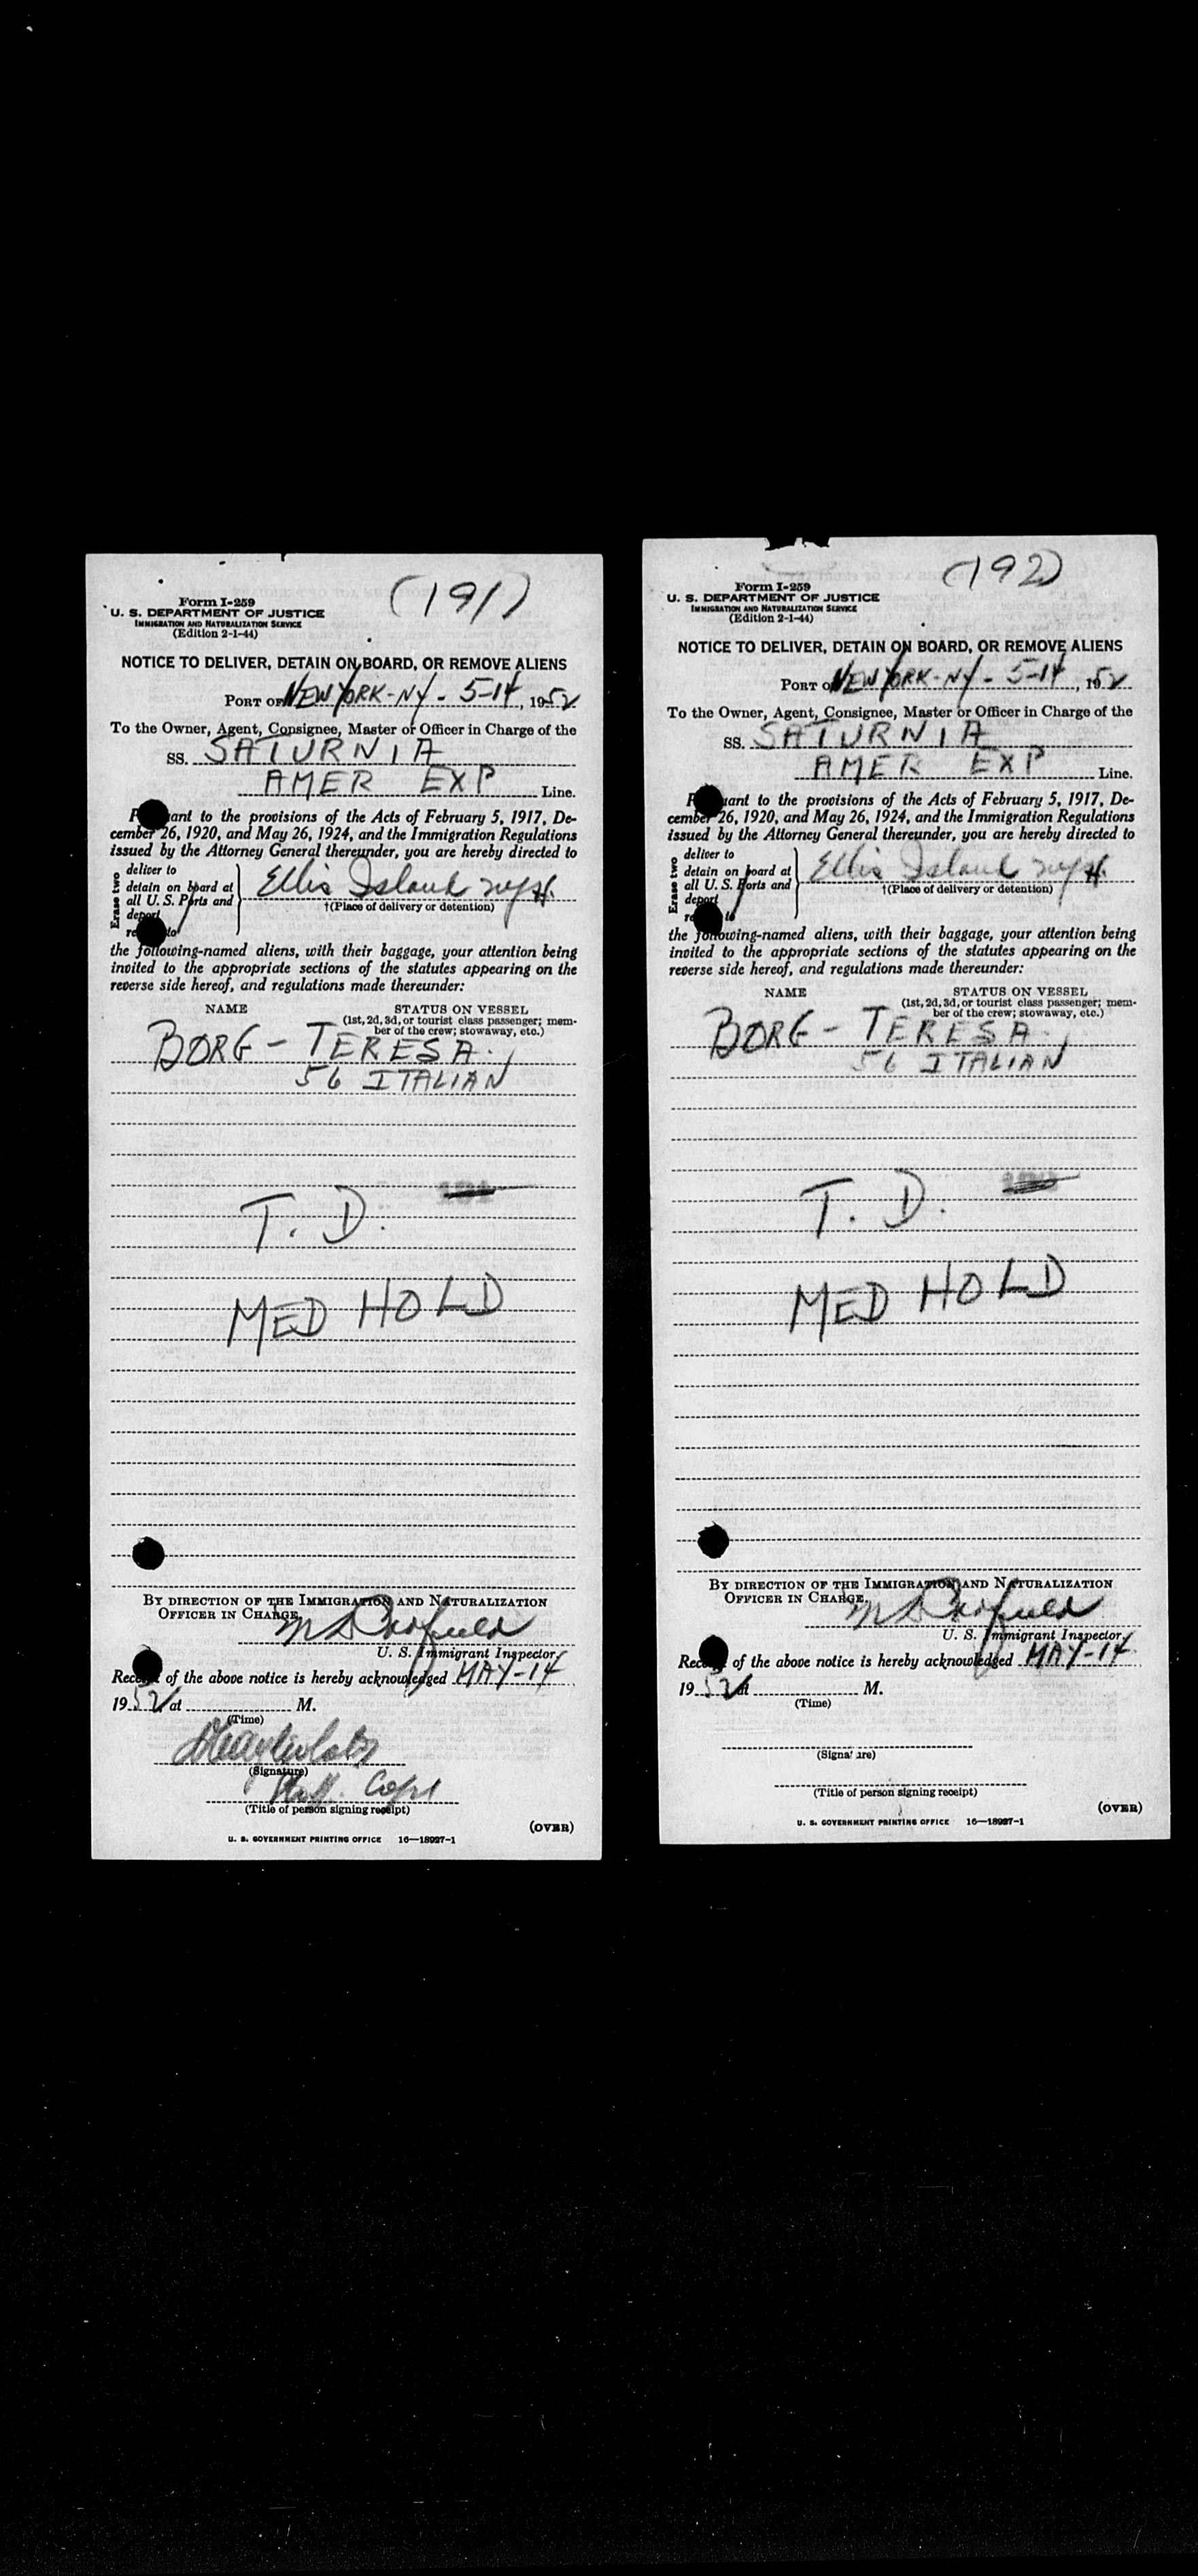 (191)
Form I-259
U. S. DEPARTMENT OF JUSTICE
IMMIGRATION AND NATURALIZATION SERVICE
(Edition 2-1-44)
NOTICE TO DELIVER, DETAIN ON BOARD, OR REMOVE ALIENS
PORT OF NEW YORK-NY - 5-14, 1952
To the Owner, Agent, Consignee, Master or Officer in Charge of the
SS. SATURNIA
AMER EXP Line.
P ant to the provisions of the Acts of February 5, 1917, De-
cember 26, 1920, and May 26, 1924, and the Immigration Regulations
issued by the Attorney General thereunder, you are hereby directed to
Erase two
deliver to
detain on board at
all U. S. Ports and
deport
re to
Ellis Island nyh
†(Place of delivery or detention)
the following-named aliens, with their baggage, your attention being
invited to the appropriate sections of the statutes appearing on the
reverse side hereof, and regulations made thereunder:
NAME STATUS ON VESSEL
(1st, 2d, 3d, or tourist class passenger; mem-
ber of the crew; stowaway, etc.)
BORG - TERESA.
56 ITALIAN
T. D.
MED HOLD
BY DIRECTION OF THE IMMIGRATION AND NATURALIZATION
OFFICER IN CHARGE,
U. S. Immigrant Inspector.
Rece of the above notice is hereby acknowledged MAY-14
1952 at M.
(Time)
(Signature)
(Title of person signing receipt)
(OVER)
U. S. GOVERNMENT PRINTING OFFICE 16—18927-1
(192)
Form I-259
U. S. DEPARTMENT OF JUSTICE
IMMIGRATION AND NATURALIZATION SERVICE
(Edition 2-1-44)
NOTICE TO DELIVER, DETAIN ON BOARD, OR REMOVE ALIENS
PORT O NEW YORK-NY - 5-14, 1952
To the Owner, Agent, Consignee, Master or Officer in Charge of the
SS. SATURNIA
AMER EXP Line.
P uant to the provisions of the Acts of February 5, 1917, De-
cember 26, 1920, and May 26, 1924, and the Immigration Regulations
issued by the Attorney General thereunder, you are hereby directed to
Erase two
deliver to
detain on board at
all U. S. Ports and
deport
re to
Ellis Island nyh
†(Place of delivery or detention)
the following-named aliens, with their baggage, your attention being
invited to the appropriate sections of the statutes appearing on the
reverse side hereof, and regulations made thereunder:
NAME STATUS ON VESSEL
(1st, 2d, 3d, or tourist class passenger; mem-
ber of the crew; stowaway, etc.)
BORG - TERESA.
56 ITALIAN
T. D.
MED HOLD
BY DIRECTION OF THE IMMIGRATION AND NATURALIZATION
OFFICER IN CHARGE,
U. S. Immigrant Inspector.
Rece of the above notice is hereby acknowledged MAY-14
1952 at M.
(Time)
(Signature)
(Title of person signing receipt)
(OVER)
U. S. GOVERNMENT PRINTING OFFICE 16—18927-1